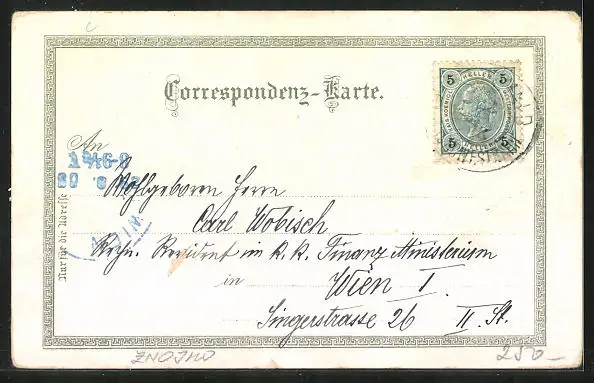 Correspondenz-Karte.
5 HELLER 5
5 HELLER 5
An
Wohlgeboren Herrn
Carl Wobisch
Rechn. Revident im k. k. Finanz Ministerium
in Wien I.
Singerstrasse 26 II. St.
Nur für die Adresse
WIEN
ZNOJMO
250-